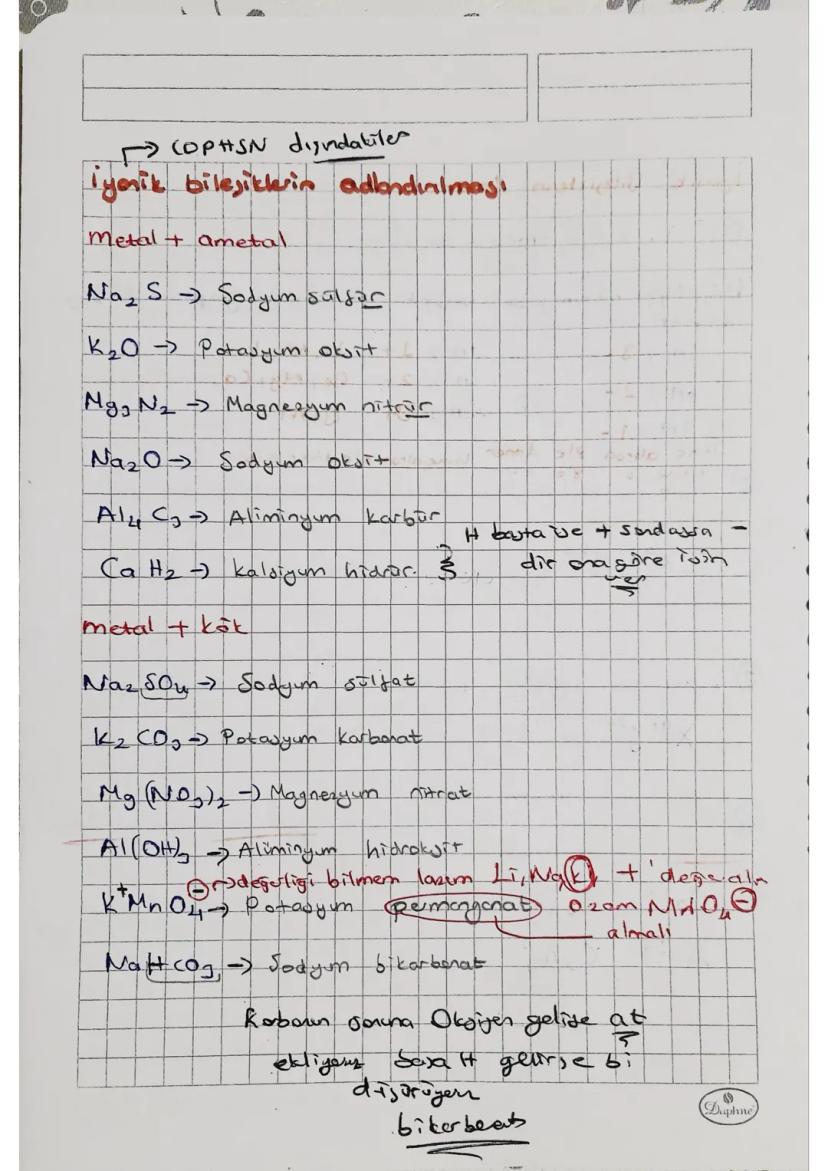 → COPHSN dışındakiler
iyonik bileşiklerin adlandırılması
metal + ametal
Na₂S → Sodyum sülfür
K₂O → Potasyum oksit
Mg₃N₂ → Magnezyum nitrür
Na₂O → Sodyum oksit
Al₄C₃ → Aliminyum karbür
H başta ise + sondaysa -
CaH₂ → kalsiyum hidrür.
dir ona göre isim
ver
metal + kök
Na₂SO₄ → Sodyum sülfat
K₂CO₃ → Potasyum karbonat
Mg(NO₃)₂ → Magnezyum nitrat
Al(OH)₃ → Aliminyum hidroksit
→ değerliği bilmem lazım Li, Na, K +
K⁺MnO₄⁻ → Potasyum permanganat o zam MnO₄⁻
almalı
NaHCO₃ → Sodyum bikarbonat
Karbonun sonuna Oksijen gelirse at
ekliyoruz başa H gelirse bi
düşürüyoruz
Daphne